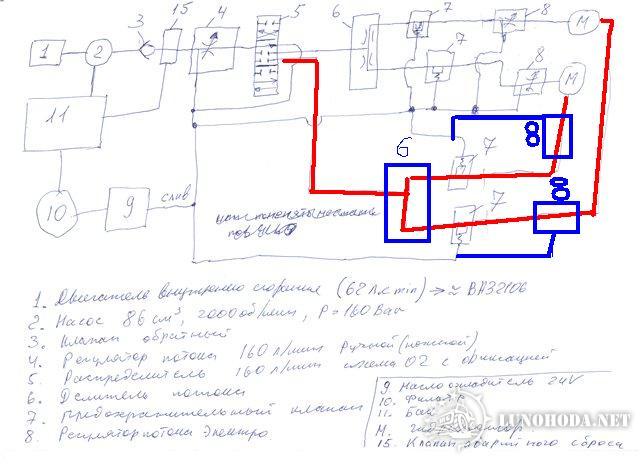 3 15 4 5 6 7 8 M
1 2
7 8 M
11
8
6 7
8
10 9 слив
7
1. Двигатель внутреннего сгорания (62 л.с min) → ≈ ВАЗ 2106
2. Насос 86 см³, 2000 об/мин, P = 160 Bar
3. Клапан обратный
4. Регулятор потока 160 л/мин ручной (ножной)
5. Распределитель 160 л/мин схема 02 с фиксацией
6. Делитель потока
7. Предохранительный клапан
8. Регулятор потока Электро
9. Маслоохладитель 24V
10. Фильтр
11. Бак
M. гидромотор
15. Клапан аварийного сброса
LUNOHODA.NET